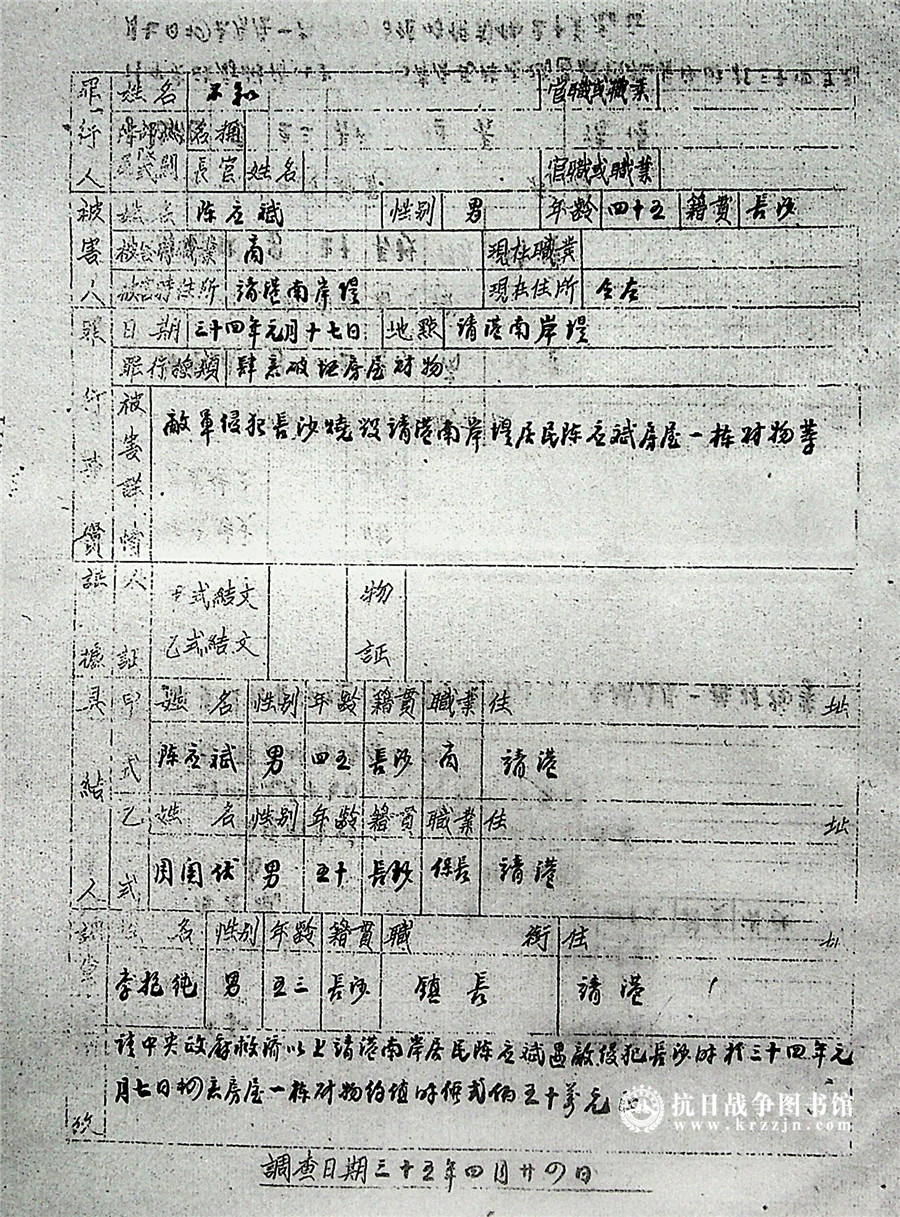 罪行人 姓名 不知 官職或職業
名稱
長官 姓名 官職或職業
被害人 姓名 陈应斌 性别 男 年龄 四十五 籍贯 長沙
被害時職業 商 現在職業
被害時住所 请港南岸堤 現在住所 仝左
罪行事實 日期 三十四年元月十七日 地點 请港南岸堤
罪行種類 肆意破坏房屋财物
被害詳情 敵軍侵犯長沙燒毁请港南岸堤居民陈应斌房屋一栋财物等
証據 人証 甲式結文 物証
乙式結文
具結人 甲式 姓名 性别 年龄 籍貫 職業 住址
陈应斌 男 四五 長沙 商 请港
乙式 姓名 性别 年龄 籍貫 職業 住址
男 五十 長沙 保長 请港
調查 姓名 性别 年龄 籍貫 職銜 住址
李 纯 男 五三 長沙 镇長 请港
请中央政府救济以上请港南岸居民陈应斌遇敵侵犯長沙时於三十四年元
月七日 房屋一栋财物约值时伪币 五十萬元
調查日期三十五年四月廿四日
抗日战争图书馆
www.krzzjn.com